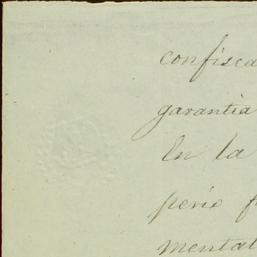 confisca
garantia
En la
perio f
mental